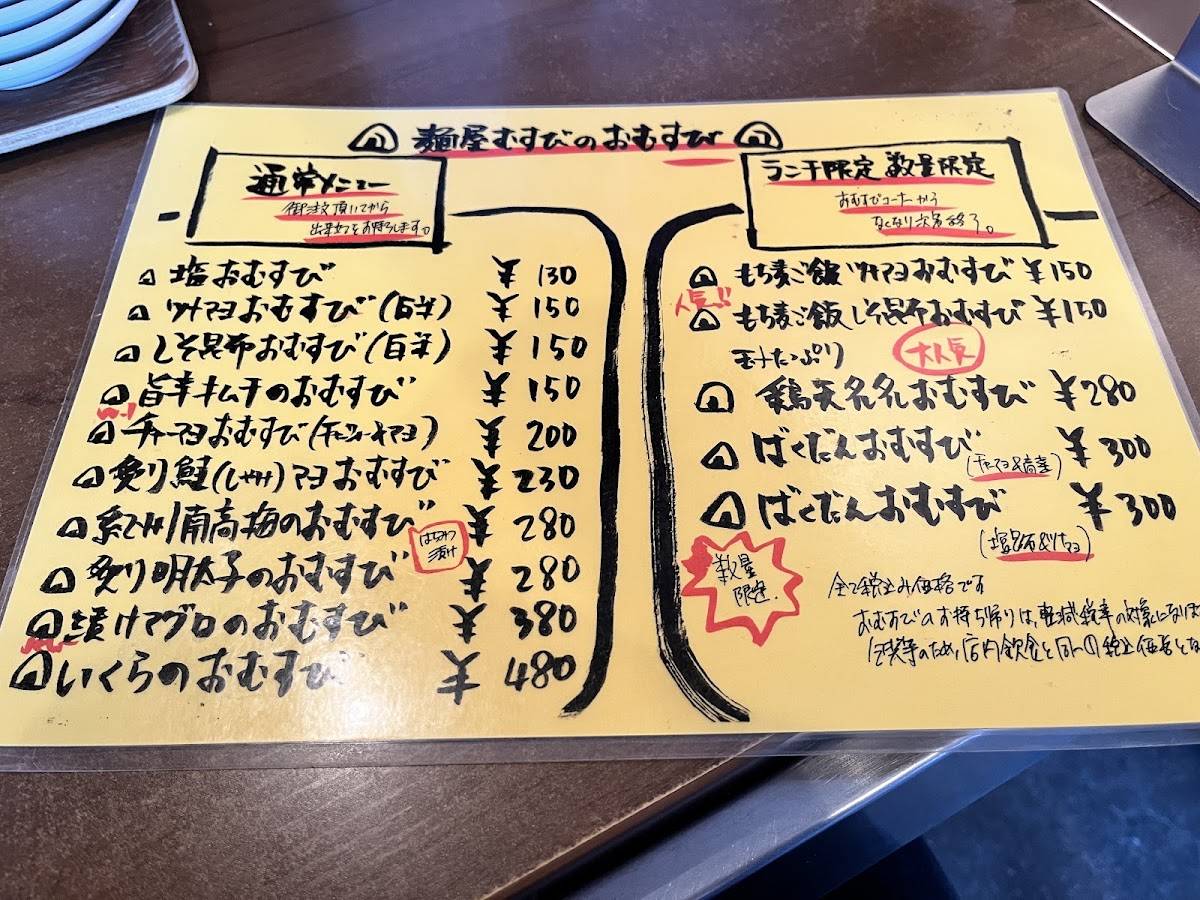 麺屋むすびのおむすび
通常メニュー
御注文頂いてから
出来立てをお持ちします。
塩おむすび ¥130
ツナマヨおむすび(白米) ¥150
しそ昆布おむすび(白米) ¥150
旨辛キムチのおむすび ¥150
チャーマヨおむすび(チャーシューマヨ) ¥200
炙り鮭(しゃけ)マヨおむすび ¥230
紀州南高梅のおむすび ¥280
はちみつ
漬け
炙り明太子のおむすび ¥280
漬けマグロのおむすび ¥380
いくらのおむすび ¥480
ランチ限定 数量限定
おむすびコーナーから
なくなり次第終了。
もち麦ご飯 ツナマヨおむすび ¥150
人気!!
もち麦ご飯 しそ昆布おむすび ¥150
大人気
たっぷり
鶏天おむすび ¥280
ばくだんおむすび ¥300
ばくだんおむすび ¥300
数量
限定
全て税込み価格です
おむすびのお持ち帰りは、軽減税率の対象になりますが
店内飲食と同一の税込価格とな